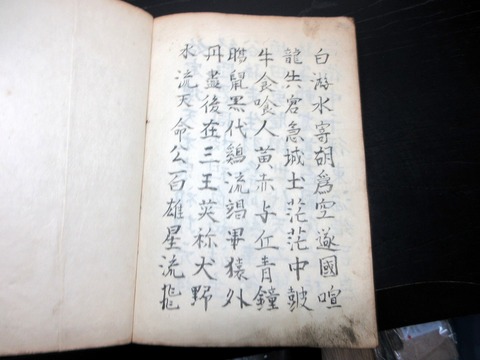 白游水寄胡爲空遂國喧
龍失窘急城土茫茫中鼓
牛食喰人黄赤与丘青鐘
腸鼠黒代鷄流竭畢猿外
丹盡後在三王英称犬野
水流天命公百雄星流飛